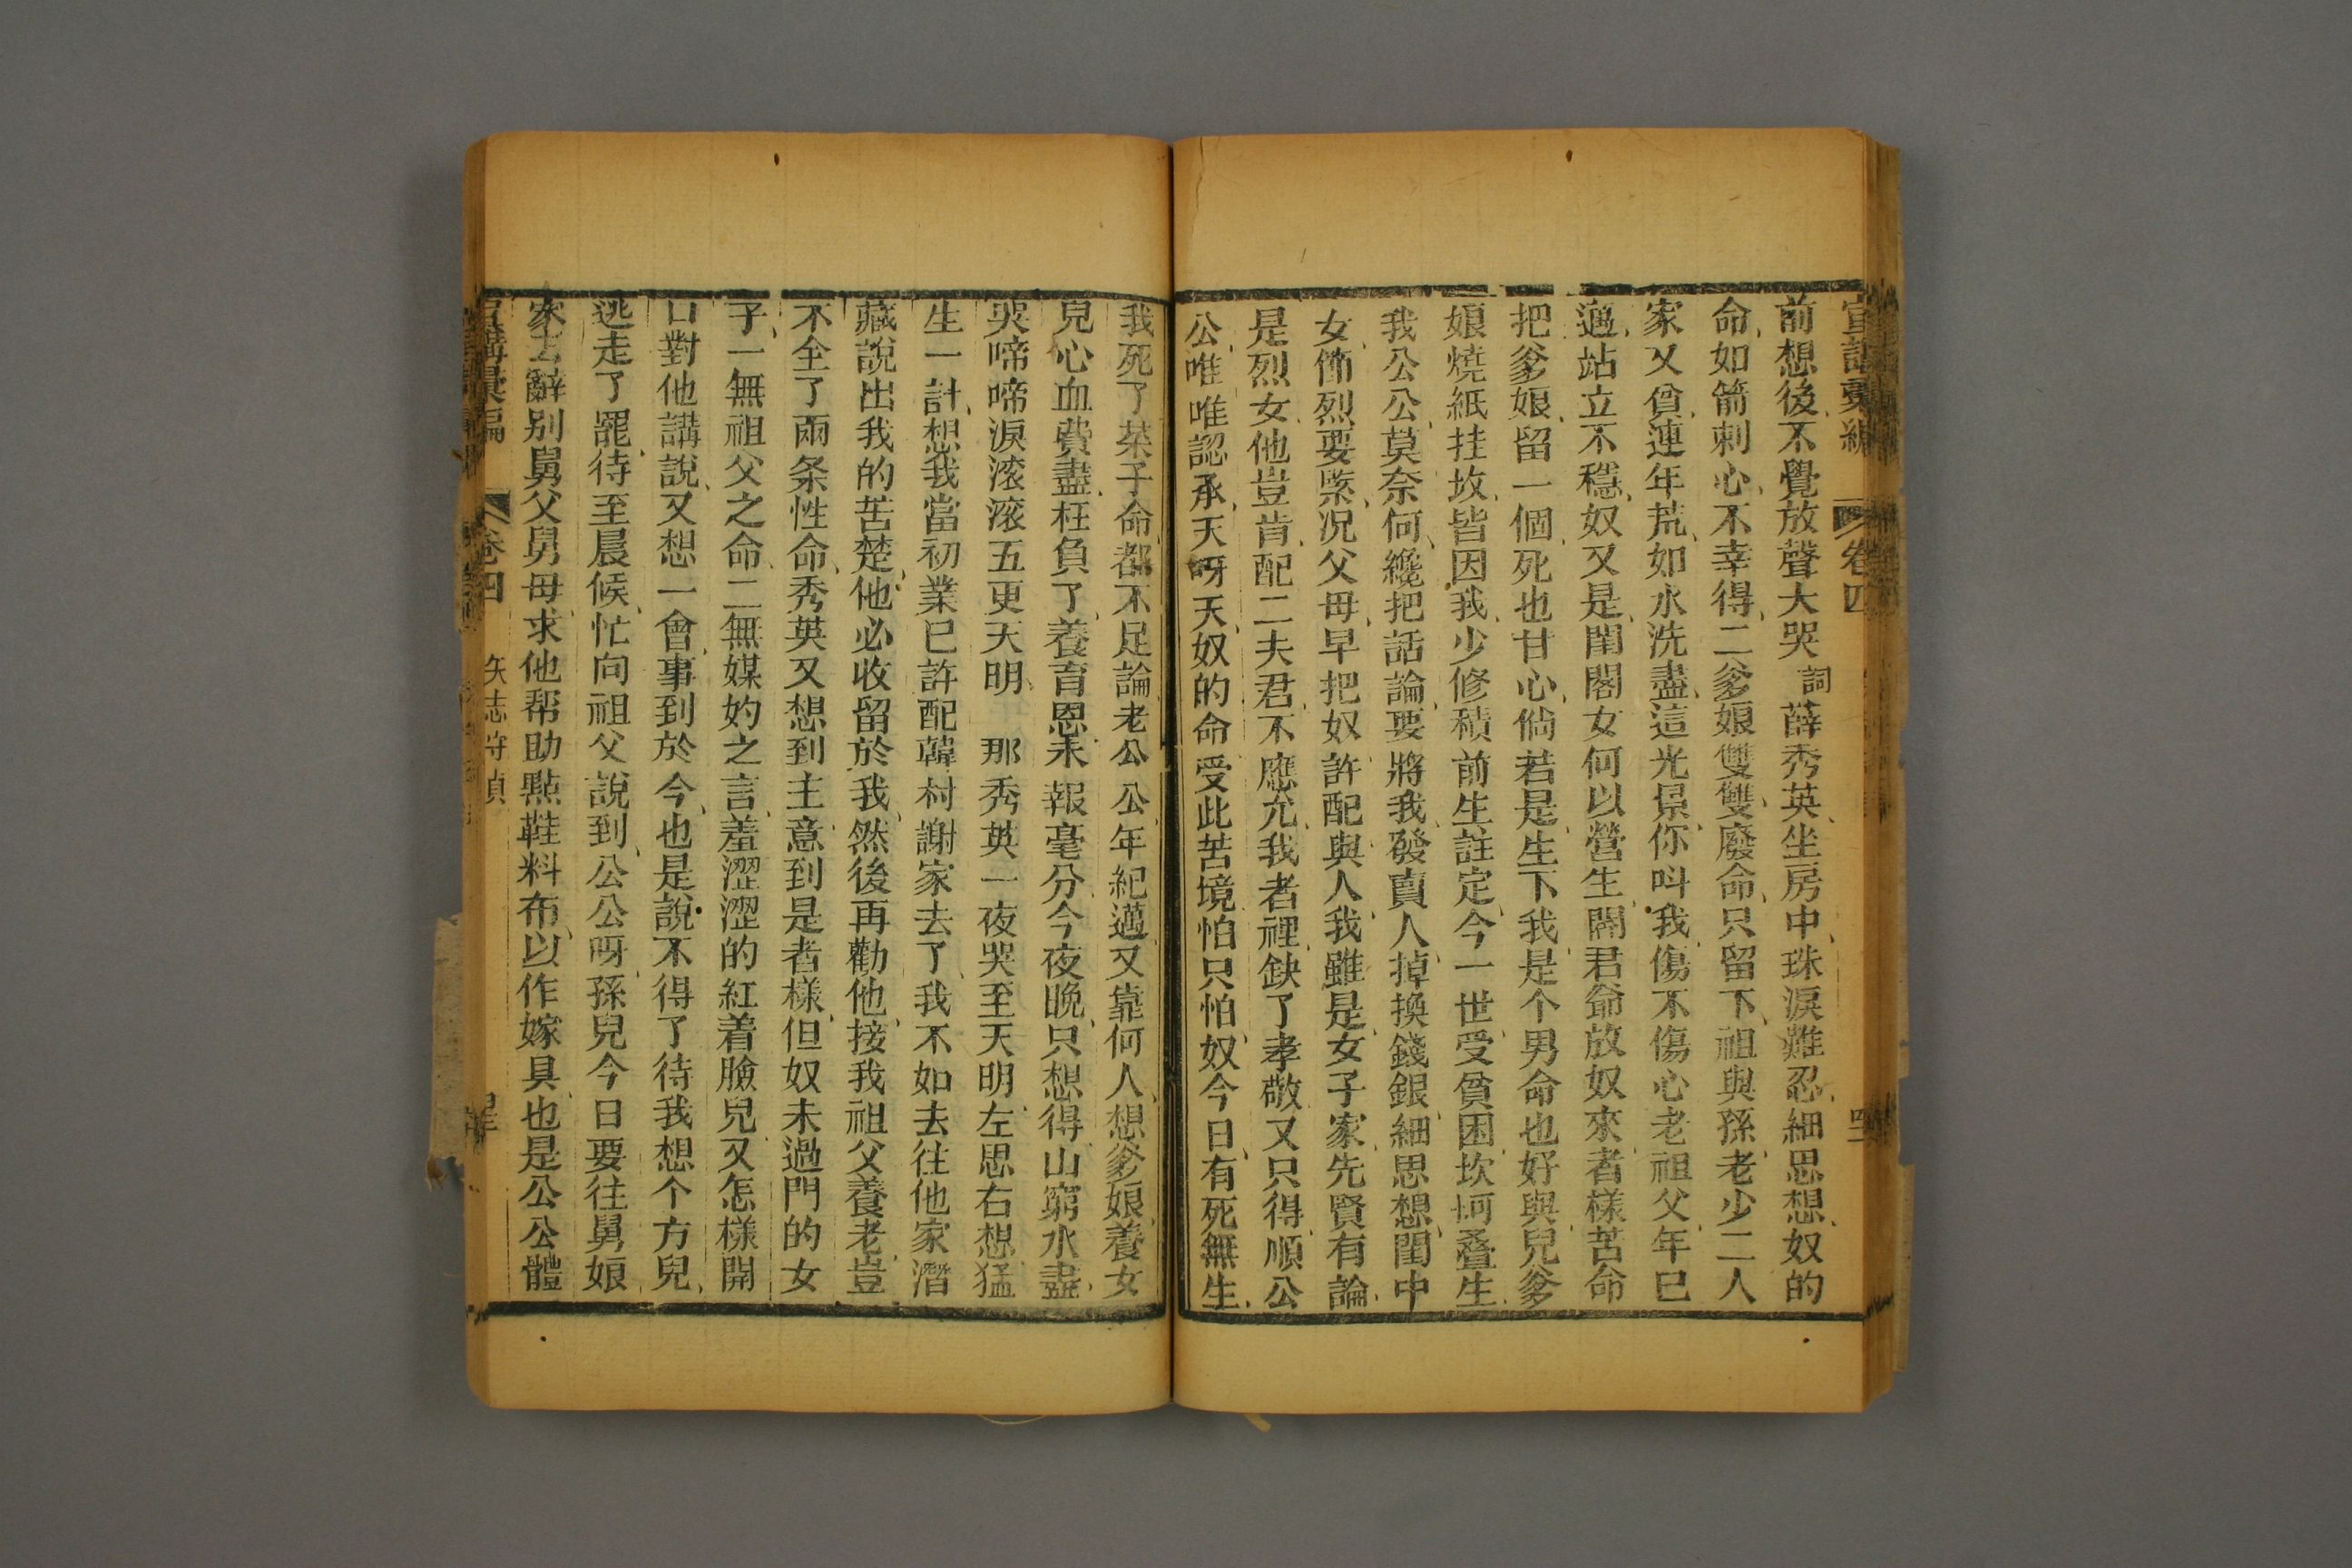 宣講彙編 卷四
前想後不覺放聲大哭 詞 薛秀英坐房中珠淚難忍細思想奴的
命如箭刺心不幸得二爹娘雙雙廢命只留下祖與孫老少二人
家又貧連年荒如水洗盡這光景你呌我傷不傷心老祖父年已
邁站立不穩奴又是閨閣女何以營生閻君爺放奴來者樣苦命
把爹娘留一個死也甘心倘若是生下我是个男命也好與兒爹
娘燒紙挂坟皆因我少修積前生註定今一世受貧困坎坷叠生
我公公莫奈何纔把話論要將我發賣人掉換錢銀細思想閨中
女節烈要緊况父母早把奴許配與人我雖是女子家先賢有論
是烈女他豈肯配二夫君不應允我者裡缺了孝敬又只得順公
公唯唯認承天呀天奴的命受此苦境怕只怕奴今日有死無生
我死了某子命都不足論老公公年紀邁又靠何人想爹娘養女
兒心血費盡枉負了養育恩未報毫分今夜晚只想得山窮水盡
哭啼啼淚滚滚五更天明 那秀英一夜哭至天明左思右想猛
生一計想我當初業已許配韓村謝家去了我不如去往他家潛
藏說出我的苦楚他必收留於我然後再勸他接我祖父養老豈
不全了兩条性命秀英又想到主意到是者樣但奴未過門的女
子一無祖父之命二無媒妁之言羞澀澀的紅着臉兒又怎樣開
口對他講說又想一會事到於今也是說不得了待我想个方兒
逃走了罷待至晨候忙向祖父說到公公呀孫兒今日要往舅娘
家去辭别舅父舅母求他帮助㸃鞋料布以作嫁具也是公公體
宣講彙編 卷四 矢志守貞